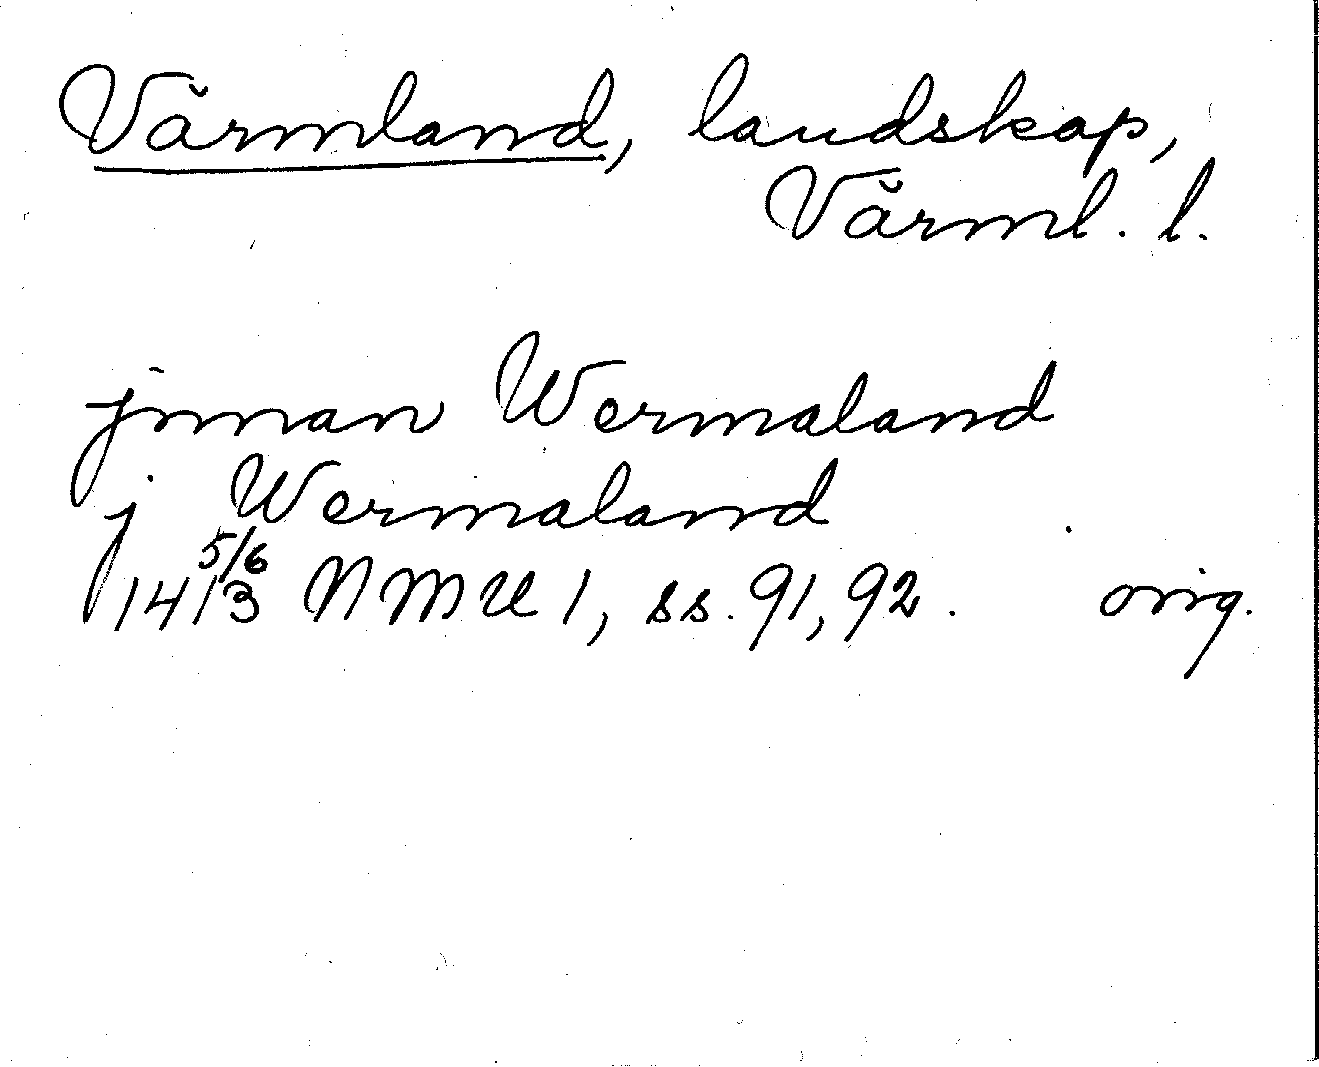 Värmland, landskap,
Värml. l.
jnnan Wermaland
j Wermaland
5/6
1413 NMU 1, ss. 91, 92. orig.